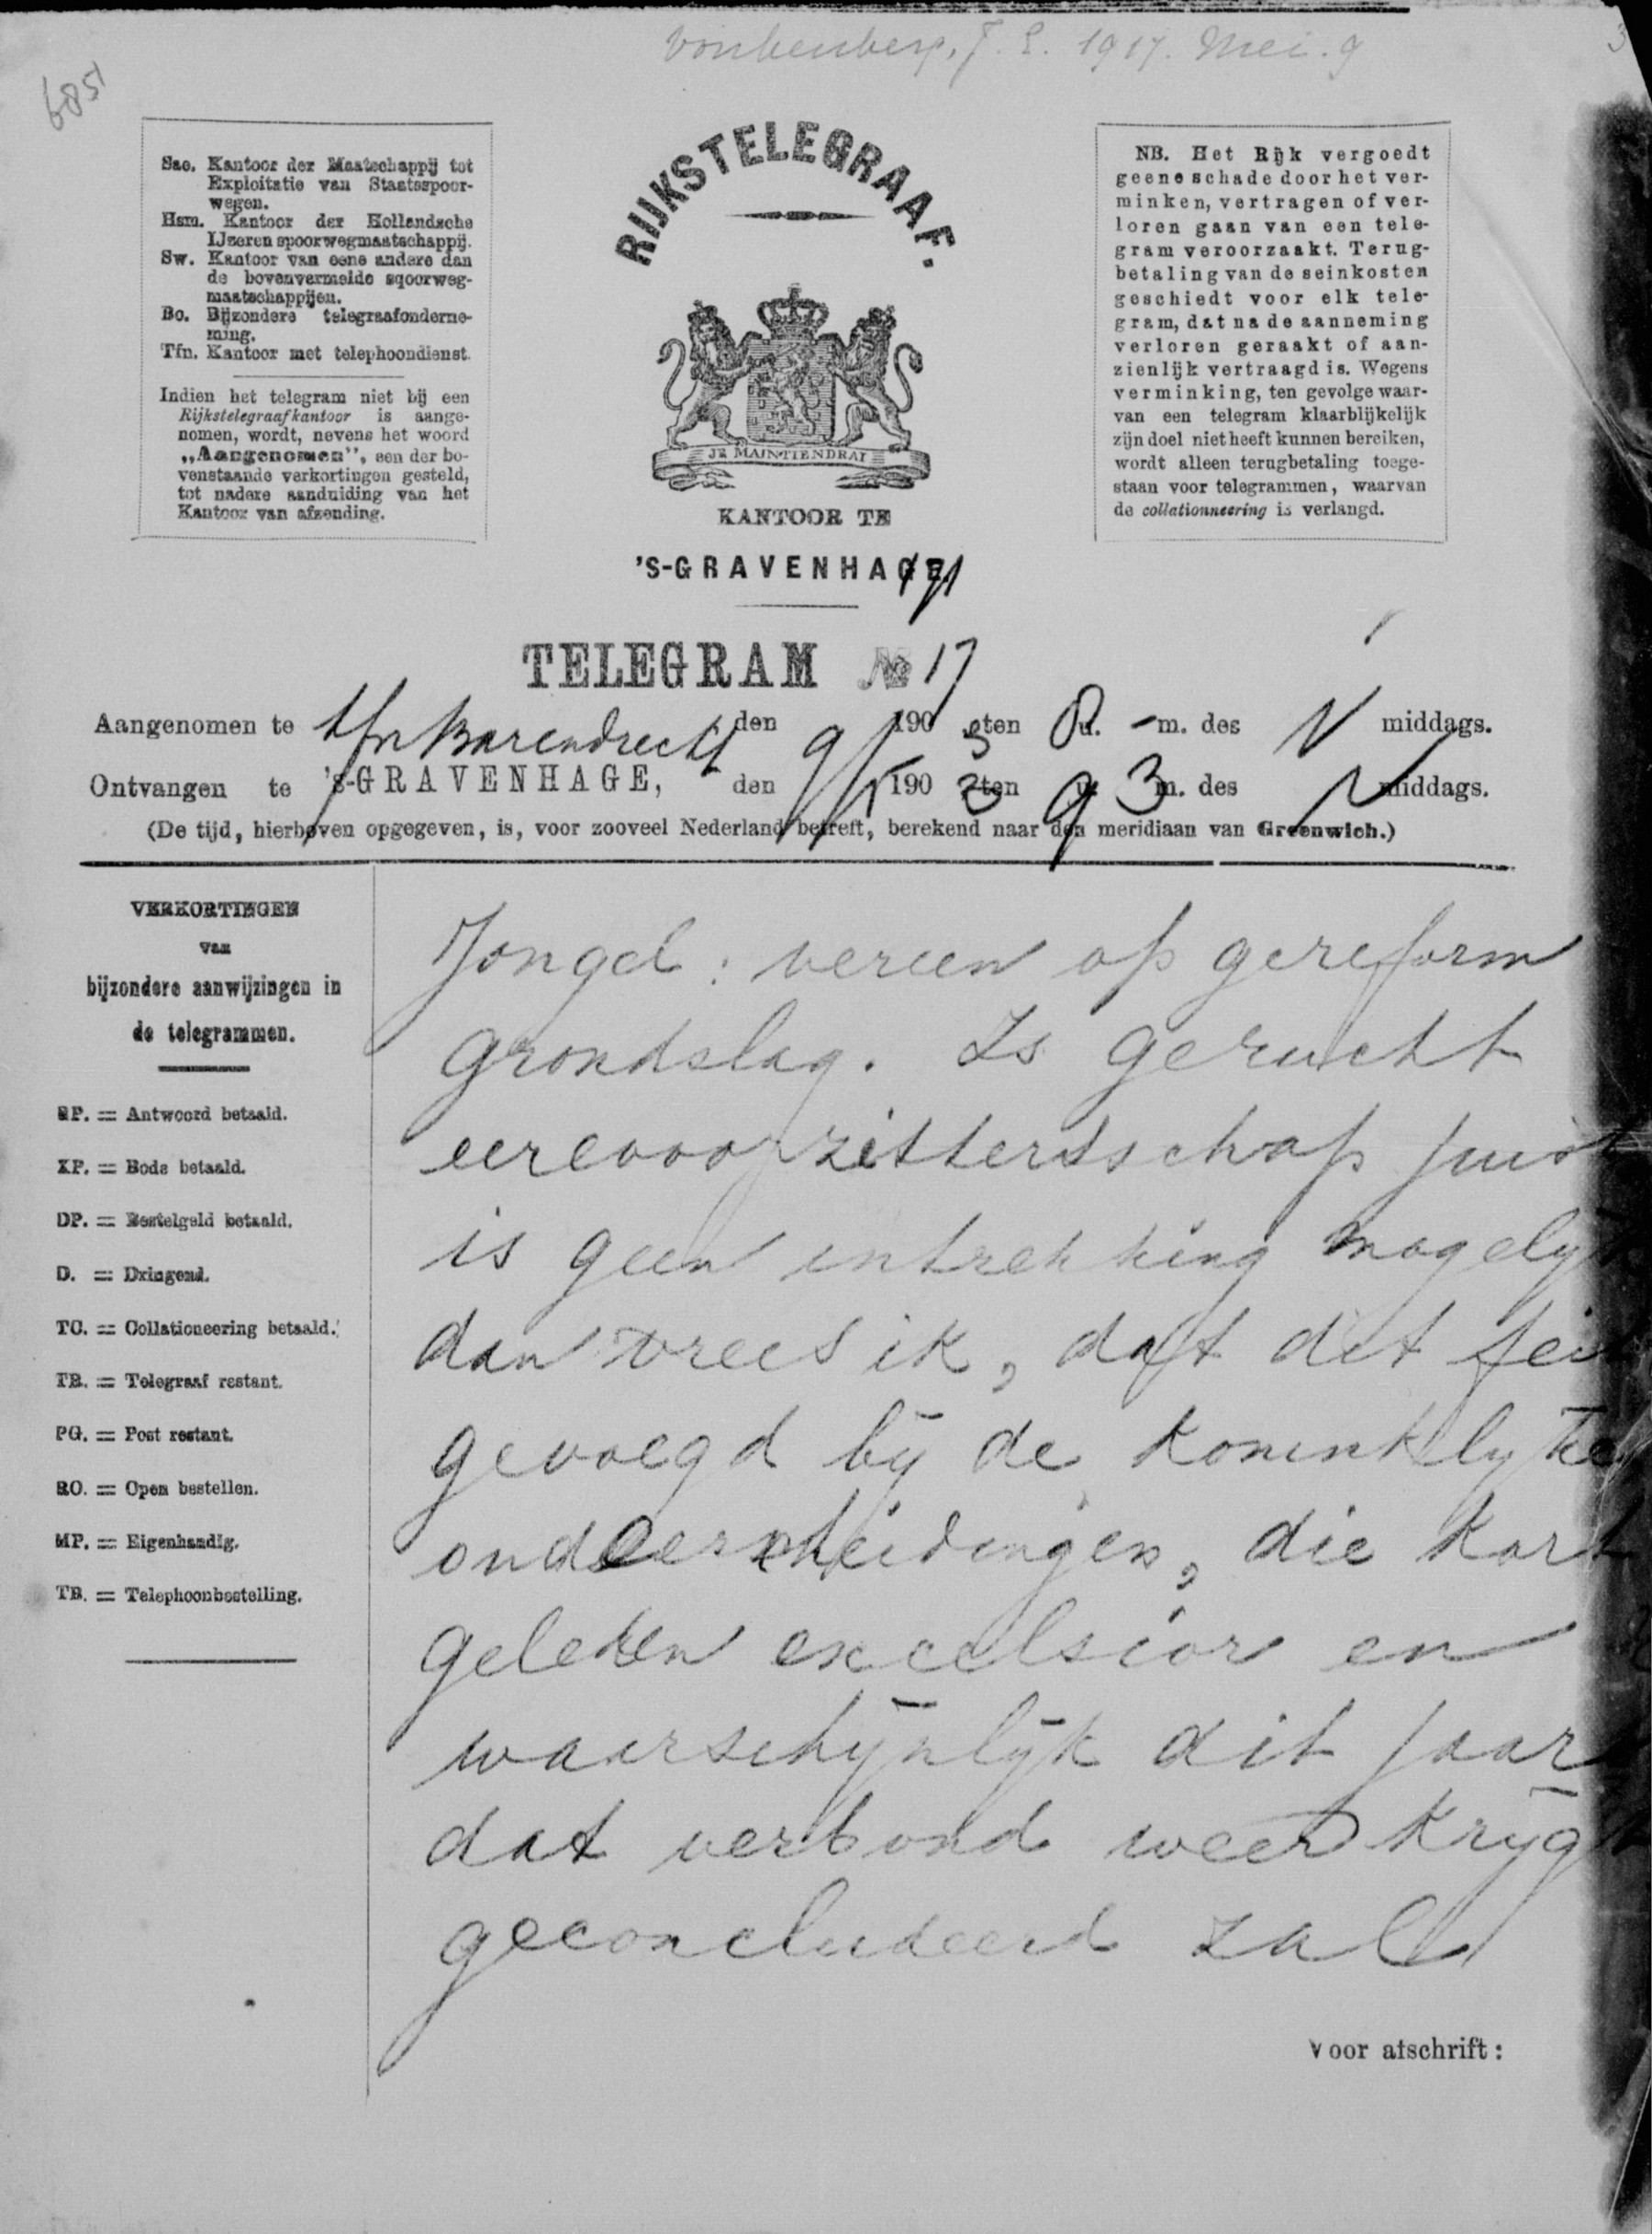 6851
Sac. Kantoor der Maatschappij tot
Exploitatie van Staatsspoor-
wegen.
Hsm. Kantoor der Hollandsche
IJzeren spoorwegmaatschappij.
Sw. Kantoor van eene andere dan
de bovenvermelde sqoorweg-
maatschappijen.
Bo. Bijzondere telegraafonderne-
ming.
Tfn. Kantoor met telephoondienst.
Indien het telegram niet bij een
Rijkstelegraafkantoor is aange-
nomen, wordt, nevens het woord
„Aangenomen”, een der bo-
venstaande verkortingen gesteld,
tot nadere aanduiding van het
Kantoor van afzending.
RIJKSTELEGRAAF.
JE MAINTIENDRAI
KANTOOR TE
'S-GRAVENHAGE
NB. Het Rijk vergoedt
geene schade door het ver-
minken, vertragen of ver-
loren gaan van een tele-
gram veroorzaakt. Terug-
betaling van de seinkosten
geschiedt voor elk tele-
gram, dat na de aanneming
verloren geraakt of aan-
zienlijk vertraagd is. Wegens
verminking, ten gevolge waar-
van een telegram klaarblijkelijk
zijn doel niet heeft kunnen bereiken,
wordt alleen terugbetaling toege-
staan voor telegrammen, waarvan
de collationneering is verlangd.
TELEGRAM № 17
Aangenomen te tfn Barendrecht den 9/5 190 ten 8 u. - m. des N middags.
Ontvangen te 's-GRAVENHAGE, den 9/5 190 ten 9 u. 3 m. des N middags.
(De tijd, hierboven opgegeven, is, voor zooveel Nederland betreft, berekend naar den meridiaan van Greenwich.)
VERKORTINGEN
van
bijzondere aanwijzingen in
de telegrammen.
RP. = Antwoord betaald.
XP. = Bode betaald.
DP. = Bestelgeld betaald.
D. = Dringend.
TC. = Collationeering betaald.
TR. = Telegraaf restant.
PG. = Post restant.
RO. = Open bestellen.
MP. = Eigenhandig.
TB. = Telephoonbestelling.
Jongel: vereen op gereform
grondslag. Is gerucht
eerevoorzitterschap juist
is geen intrekking mogelijk
dan vrees ik, dat dit feit
gevoegd bij de koninklyke
onderscheidingen, die kort
geleden excelsior en
waarschijnlijk dit jaar
dat verbond weer krijgt
geconcludeerd zal
Voor afschrift: